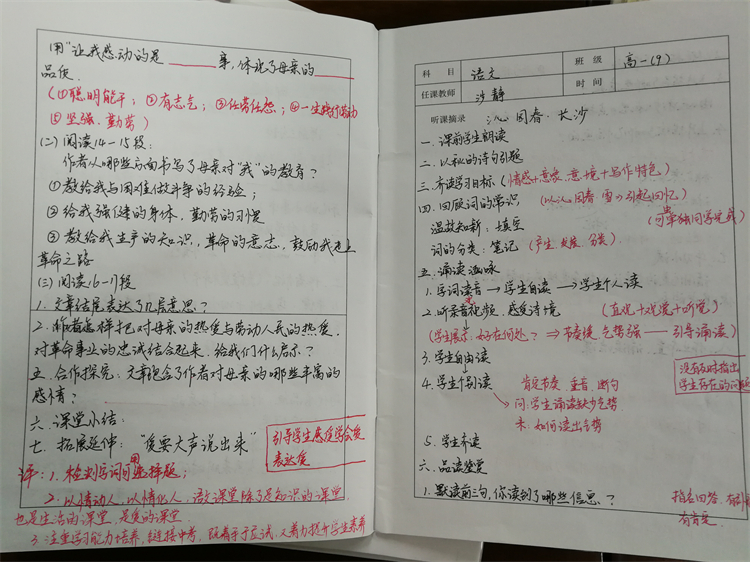 用"让我感动的是______事,体现了母亲的______
品质.
(①聪明能干; ②有志气; ③任劳任怨; ④一生
⑤坚强、勤劳)
(二)阅读14-15段:
作者从哪些方面书写了母亲对"我"的教育?
①教给我与困难做斗争的经验;
②给我强健的身体、勤劳的习惯
③教给我生产的知识,革命的意志,鼓励我走上
革命之路
(三)阅读16-17段
1.文章结尾表达了几层意思?
2.作者怎样把对母亲的热爱与劳动人民的热爱,
对革命事业的忠诚结合起来,给我们什么启示?
五.合作探究:文章饱含了作者对母亲的哪些丰富的
感情?
六.课堂小结:
七.拓展延伸:"爱要大声说出来"
引导学生感受学会爱
表达爱
评:1.检测字词用选择题;
2.以情动人,以情化人,语文课堂除了是知识的课堂,
也是生活的课堂,是爱的课堂
3.注重学习能力培养,链接中考,既着手于应试,又着力提升学生素养
科 目 语文 班 级 高一(9)
任课教师 静 时 间
听课摘录 沁园春·长沙
一.课前学生朗读
二.以和的诗句引题
三.齐读学习目标.(情感+意象、意境+写作特色)
四.回顾词的常识 (以沁园春·雪 引起回忆)
温故知新:填空 (可单独同学完成)
词的分类:笔记 (产生、发展、分类)
五.诵读涵咏
1.字词读音→学生自读→学生个人读
2.听录音视频,感受诗境 (直观+视觉+听觉)
(学生展示:好在何处? ⇒节奏缓、气势强——引导诵读)
3.学生自由读
4.学生个别读 肯定节奏、重音、断句
问:学生诵读缺少气势
未:如何读出气势
没有及时指出
学生存在的问题
5.学生齐读
六.品读鉴赏
1.默读前三句,你读到了哪些信息?
指名回答,
有肯定.